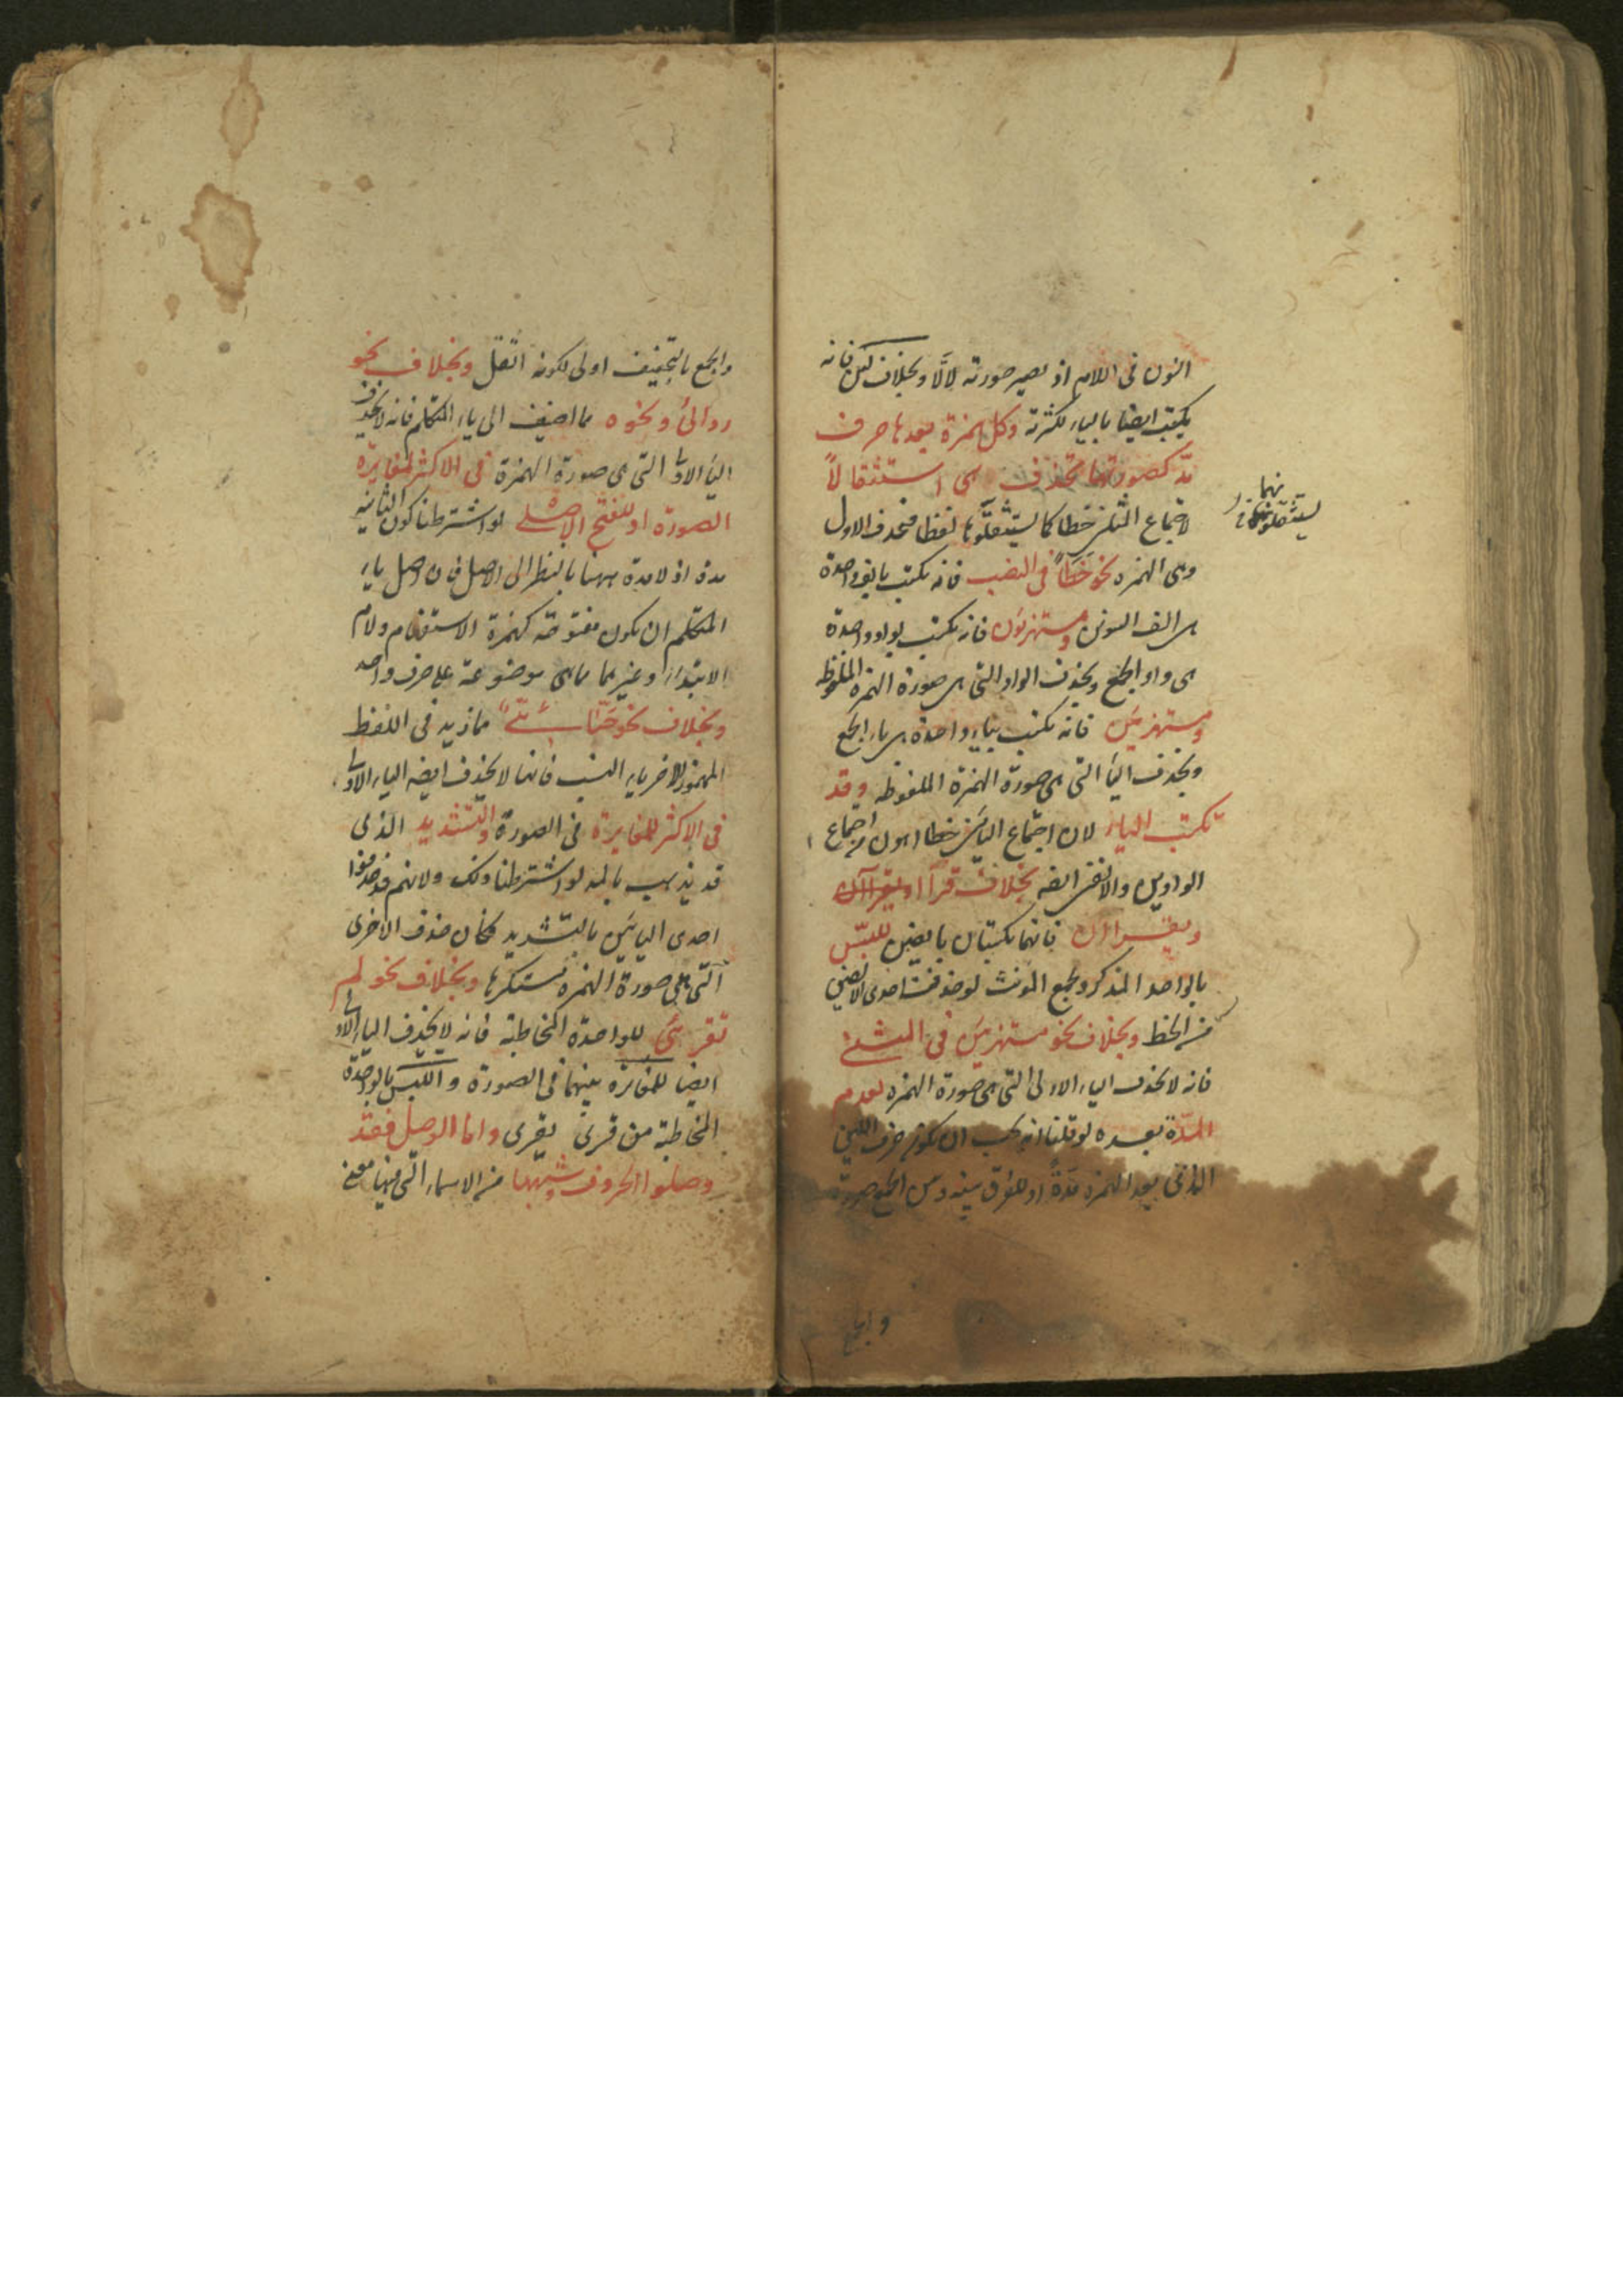 النون فى اللام اذ يصير صورته لالّا وبخلاف لئن فانه
يكتب ايضا بالياء لكثرته وكل همزة بعدها حرف
مدّ كصورتها تحذف اى استثقالاً
لاجتماع المثلين خطا كما يستثقلونها لفظا فتحذف الاول
وهى الهمزه نحو خطأً فى النصب فانه يكتب بالف واحدة
هى الف التنوين ومستهزئون فانه يكتب بواو واحدة
هى واو الجمع ويحذف الواو التى هى صورة الهمزة الملفوظه
ومستهزئين فانه يكتب بياء واحدة هى ياء الجمع
ويحذف الياء التى هى صورة الهمزة الملفوظه وقد
تكتب الياء لان اجتماع اليائين خطا اهون من اجتماع
الواوين والالفين ايضه بخلاف قرأا ويقراآن
ويقراان فانهما يكتبان بالفين للبس
بالواحد المذكر وجمع المؤنث لو حذفت احدى الالفين
من الخط وبخلاف نحو مستهزئين فى المثنى
فانه لا يحذف الياء الاولى التى هى صورة الهمزه لعدم
المدّة بعده لو قلنا انه يجب ان يكون حرف اللين
الذى بعد الهمزه مدّةً او للفرق بينه وبين الجمع صورة
والجمع
يستثقلونهما
والجمع بالتخفيف اولى لكونه اثقل وبخلاف نحو
ردائى ونحوه مما اضيف الى ياء المتكلم فانه لا يحذف
الياء الاولى التى هى صورة الهمزة فى الاكثر لمغايرة
الصورة او للفتح الاصلى لو اشترطنا كون الثانية
مدة اذ لا مدة ههنا بالنظر الى الاصل فان اصل ياء
المتكلم ان يكون مفتوحة كهمزة الاستفهام ولام
الابتداء وغيرهما مما هى موضوعة على حرف واحد
وبخلاف نحو حنّائىّ مما زيد فى اللفظ
المهموز الاخر ياء النسب فانها لا يحذف ايضه الياء الاولى
فى الاكثر للمغايرة فى الصورة والتشديد الذى
قد يذهب بالمد لو اشترطنا ذلك ولانهم قد حذفوا
احدى اليائين بالتشديد فكان حذف الاخرى
التى هى صورة الهمزه مستكرها وبخلاف نحو لم
تقرئى للواحدة المخاطبة فانه لا يحذف الياء الاولى
ايضا للمغايرة بينهما فى الصورة واللبس بالواحدة
المخاطبة من قرى يقرى واما الوصل فقد
وصلوا الحروف وشبهها من الاسماء التى فيها معنى